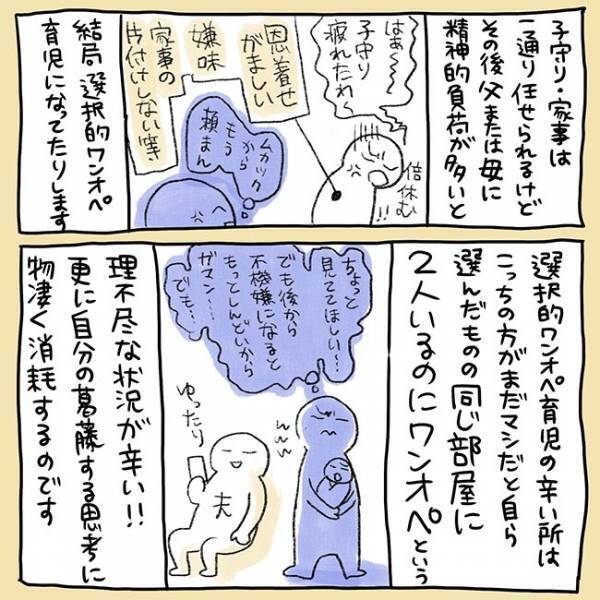 子守り・家事は
一通り任せられるけど
その後父または母に
精神的負荷が多いと
はぁ〜〜
子守り
疲れたわ〜
倍休む
!!
恩着せ
がましい
嫌味
家事の
片付けしない等
ムカック
から
もう
頼まん
結局 選択的ワンオペ
育児になってたりします
選択的ワンオペ育児の辛い所は
こっちの方がまだマシだと自ら
選んだものの同じ部屋に
2人いるのにワンオペという
ちょっと
見ててほしい…
でも後から
不機嫌になると
もっとしんどいから
ガマン……
でも…
ゆったり
夫
理不尽な状況が辛い!!
更に自分の葛藤する思考に
物凄く消耗するのです